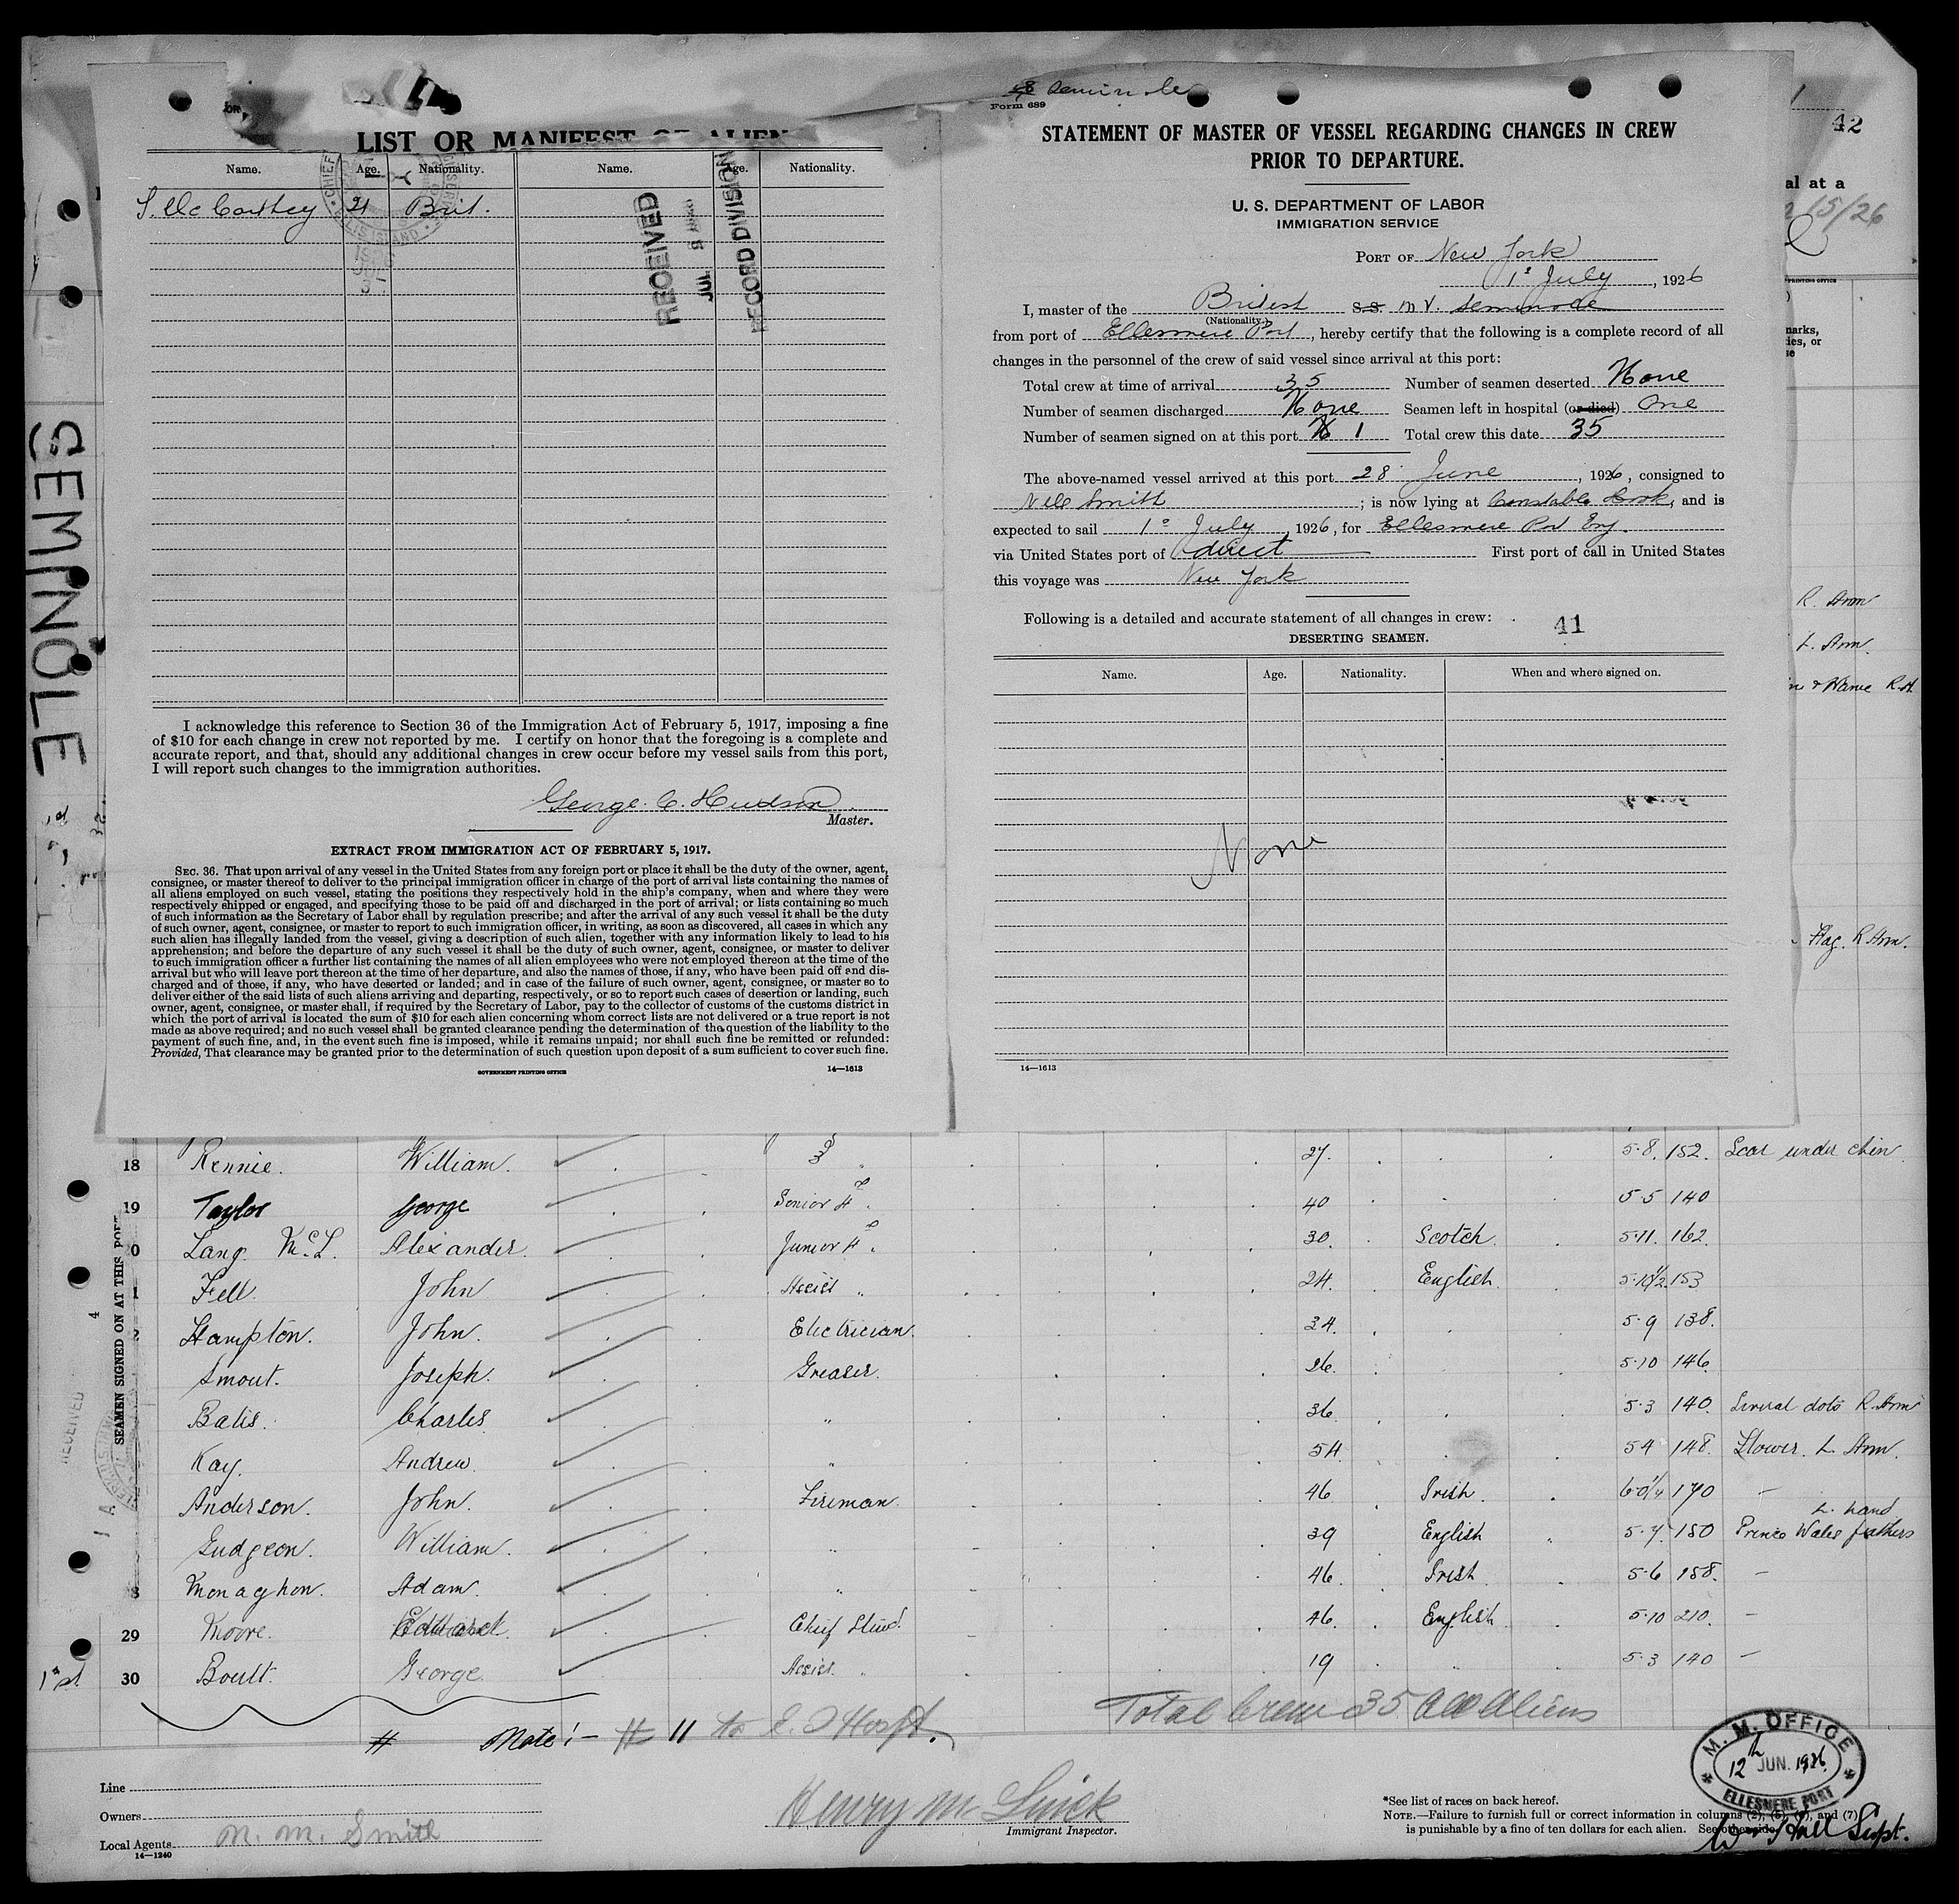 LIST OR MANIFEST OF ALIEN
Name. Age. Nationality. Name. Age. Nationality.
S. McCarthey 21 Brit.
CHIEF
ELLIS ISLAND
RECEIVED
RECORD DIVISION
SEMINOLE
I acknowledge this reference to Section 36 of the Immigration Act of February 5, 1917, imposing a fine
of $10 for each change in crew not reported by me. I certify on honor that the foregoing is a complete and
accurate report, and that, should any additional changes in crew occur before my vessel sails from this port,
I will report such changes to the immigration authorities.
George. C. Hudson
Master.
EXTRACT FROM IMMIGRATION ACT OF FEBRUARY 5, 1917.
SEC. 36. That upon arrival of any vessel in the United States from any foreign port or place it shall be the duty of the owner, agent,
consignee, or master thereof to deliver to the principal immigration officer in charge of the port of arrival lists containing the names of
all aliens employed on such vessel, stating the positions they respectively hold in the ship's company, when and where they were
respectively shipped or engaged, and specifying those to be paid off and discharged in the port of arrival; or lists containing so much
of such information as the Secretary of Labor shall by regulation prescribe; and after the arrival of any such vessel it shall be the duty
of such owner, agent, consignee, or master to report to such immigration officer, in writing, as soon as discovered, all cases in which any
such alien has illegally landed from the vessel, giving a description of such alien, together with any information likely to lead to his
apprehension; and before the departure of any such vessel it shall be the duty of such owner, agent, consignee, or master to deliver
to such immigration officer a further list containing the names of all alien employees who were not employed thereon at the time of the
arrival but who will leave port thereon at the time of her departure, and also the names of those, if any, who have been paid off and dis-
charged and of those, if any, who have deserted or landed; and in case of the failure of such owner, agent, consignee, or master so to
deliver either of the said lists of such aliens arriving and departing, respectively, or so to report such cases of desertion or landing, such
owner, agent, consignee, or master shall, if required by the Secretary of Labor, pay to the collector of customs of the customs district in
which the port of arrival is located the sum of $10 for each alien concerning whom correct lists are not delivered or a true report is not
made as above required; and no such vessel shall be granted clearance pending the determination of the question of the liability to the
payment of such fine, and, in the event such fine is imposed, while it remains unpaid; nor shall such fine be remitted or refunded:
Provided, That clearance may be granted prior to the determination of such question upon deposit of a sum sufficient to cover such fine.
GOVERNMENT PRINTING OFFICE 14—1613
Seminole
Form 689
STATEMENT OF MASTER OF VESSEL REGARDING CHANGES IN CREW
PRIOR TO DEPARTURE.
U. S. DEPARTMENT OF LABOR
IMMIGRATION SERVICE
PORT OF New York
1st July, 1926
I, master of the British S.S. M V. Seminole
(Nationality.)
from port of Ellesmere Port, hereby certify that the following is a complete record of all
changes in the personnel of the crew of said vessel since arrival at this port:
Total crew at time of arrival 35 Number of seamen deserted None
Number of seamen discharged None Seamen left in hospital (or died) One
Number of seamen signed on at this port 1 Total crew this date 35
The above-named vessel arrived at this port 28 June, 1926, consigned to
N M Smith; is now lying at Constable Hook, and is
expected to sail 1st July, 1926, for Ellesmere Port Eng.
via United States port of direct First port of call in United States
this voyage was New York
Following is a detailed and accurate statement of all changes in crew: 41
DESERTING SEAMEN.
Name. Age. Nationality. When and where signed on.
None
14—1613
42
al at a
15/26
R. Arm
L. Arm.
Flag. R Arm.
SEAMEN SIGNED ON AT THIS PORT
RECEIVED
18 Rennie. William. 3 " 27. 5-8. 152. Scar under chin
19 Taylor George Senior 4 " 40 5-5 140
Lang. McL. Alexander. Junior 4 " 30. Scotch. 5-11. 162.
Fell. John Assist " 24. English. 5-10 1/2 153
Hampton. John. Electrician. 24. 5-9 138.
Smout. Joseph. Greaser. 26. 5-10 146.
Batis. Charles. " 36. 5-3 140. Several dots R. Arm
Kay. Andrew. " 54. 5 4 148. Flower. L. Arm.
Anderson. John. Fireman. 46 Irish. 6-0 1/4 170 —
Gudgeon. William. " 39 English " 5-7. 150 Prince Wales feathers L. hand
Monaghon. Adam. " 46. Irish. 5-6 158. —
29 Moore. Edward. Chief Stew'd. 46. English. 5-10 210. —
30 Boult. George. Assist. " 19 " 5-3 140 —
1st
# Note! - # 11 to E. I Hospt.
Total Crew 35 All Aliens
Line
Owners
Local Agents N. M. Smith
14—1240
Immigrant Inspector.
M. M. OFFICE
12th JUN. 1926.
ELLESMERE PORT
*See list of races on back hereof.
NOTE.—Failure to furnish full or correct information in columns (2), (5), (6), and (7)
is punishable by a fine of ten dollars for each alien. See other side.
Supt.